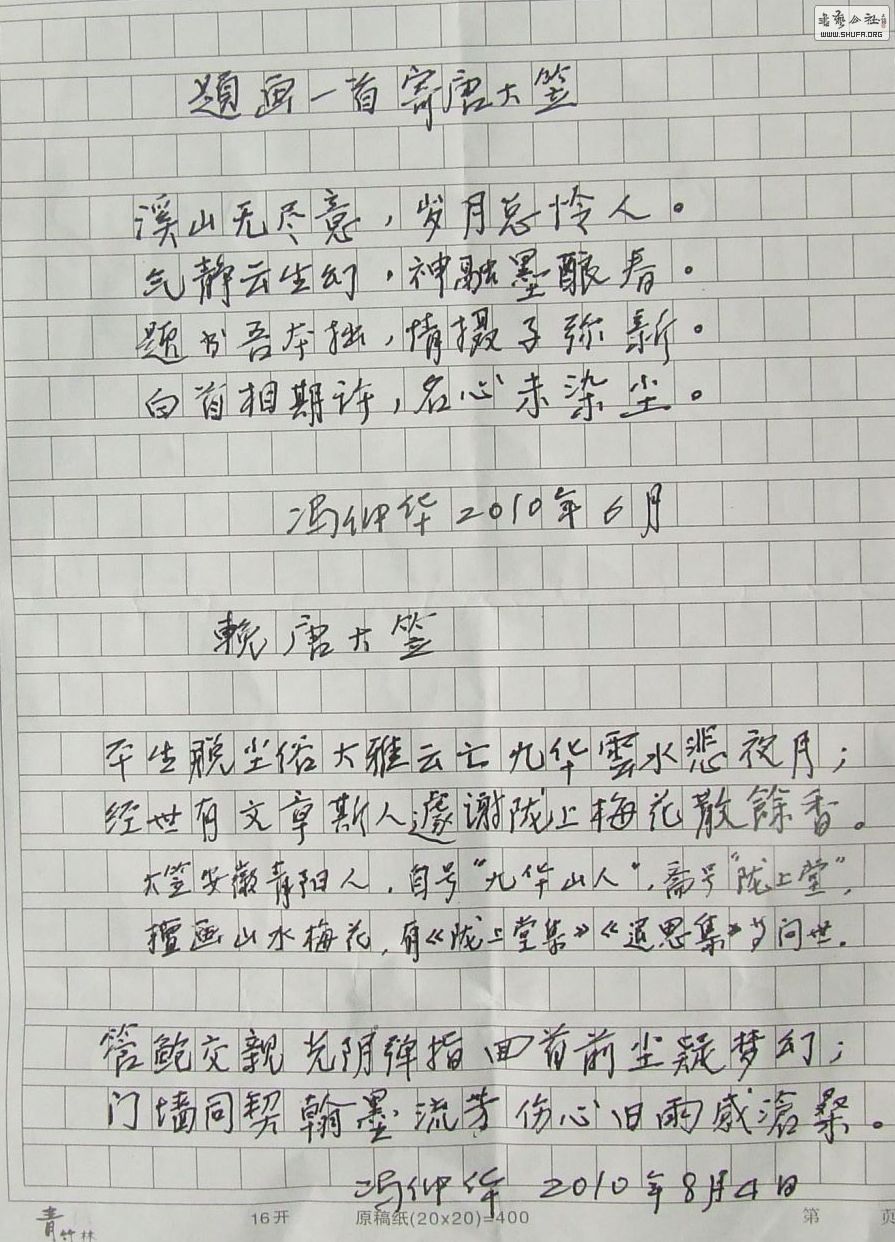 書藝公社
WWW.SHUFA.ORG
題画一首寄唐大笠
溪山无尽意，岁月总怜人。
气静云生幻，神融墨酿春。
题书吾本拙，情摄子弥新。
白首相期许，名心未染尘。
冯仲华 2010年6月
輓唐大笠
平生脱尘俗大雅云亡九华雲水悲夜月；
经世有文章斯人遽谢陇上梅花散餘香。
大笠安徽青阳人，自号“九华山人”，斋号“陇上堂”，
擅画山水梅花，有《陇上堂集》《追思集》等问世。
管鲍交親光阴弹指回首前尘疑梦幻；
门墙同契翰墨流芳伤心旧雨感滄桑。
冯仲华 2010年8月4日
青竹林
16开
原稿纸(20×20)=400
第
页